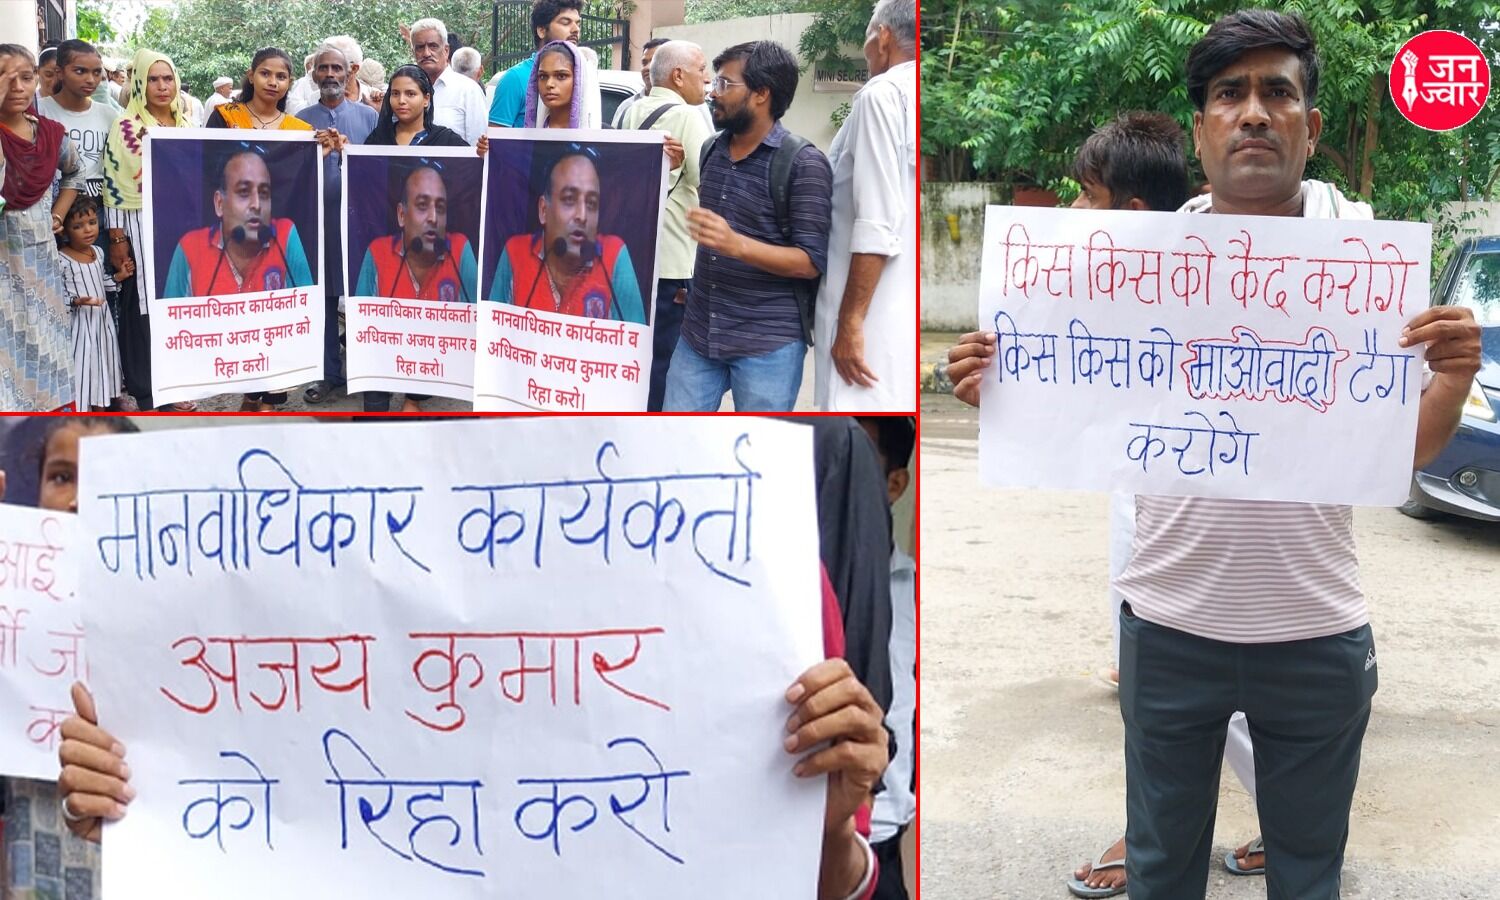 मानवाधिकार कार्यकर्ता व
अधिवक्ता अजय कुमार को
रिहा करो।
मानवाधिकार कार्यकर्ता
अधिवक्ता अजय कुमार
रिहा करो।
मानवाधिकार कार्यकर्ता व
अधिवक्ता अजय कुमार को
रिहा करो।
MINI
जन
ज्वार
किस किस को कैद करोगे
किस किस को माओवादी टैग
करोगे
आई.
मानवाधिकार कार्यकर्ता
अजय कुमार
को रिहा करो